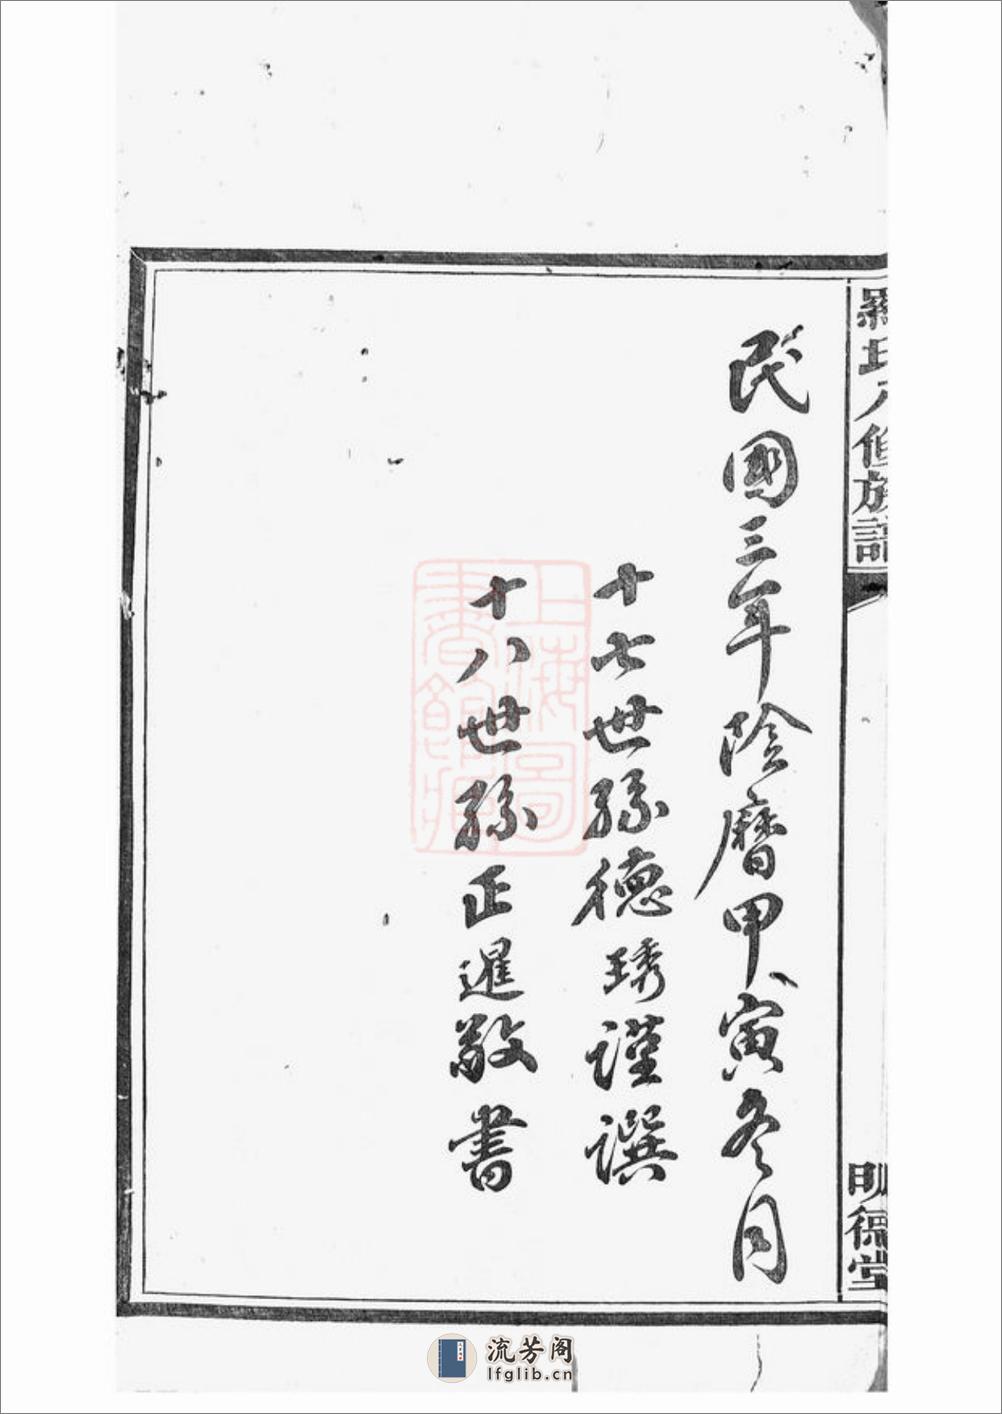 羅氏八修族譜
明德堂
民國三年陰曆甲寅冬月
十七世孫德琇謹譔
十八世孫正暹敬書
上海圖書館藏
流芳阁
lfglib.cn